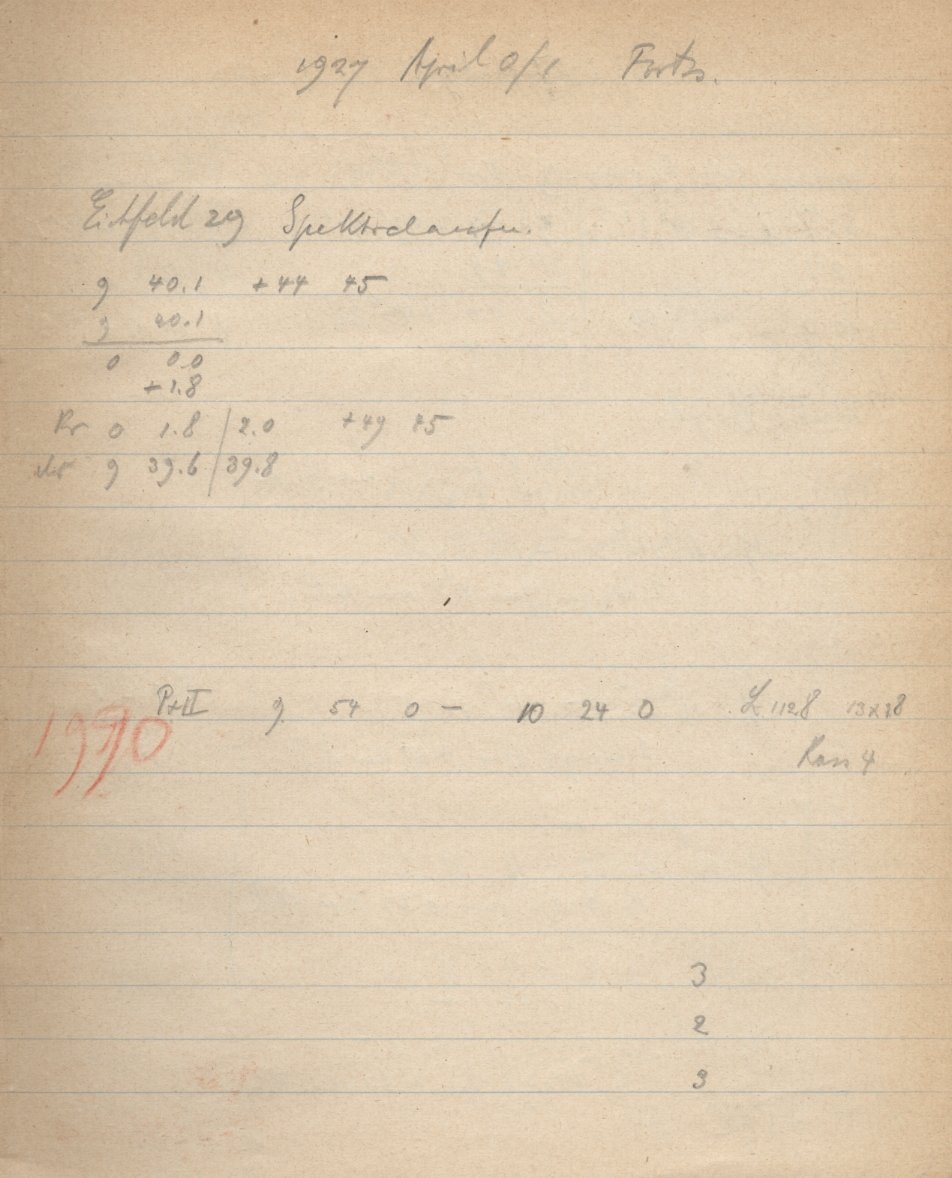 1927 April 0/1 Forts.
Eichfeld 29 Spektralaufn.
9 40.1 +44 45
9 40.1
0 0.0
+1.8
Pr 0 1.8 / 2.0 +49 45
9 39.6 / 39.8
Pr II 9 54 0 – 10 24 0 L 1128 13x18
Kass 4
3
2
3